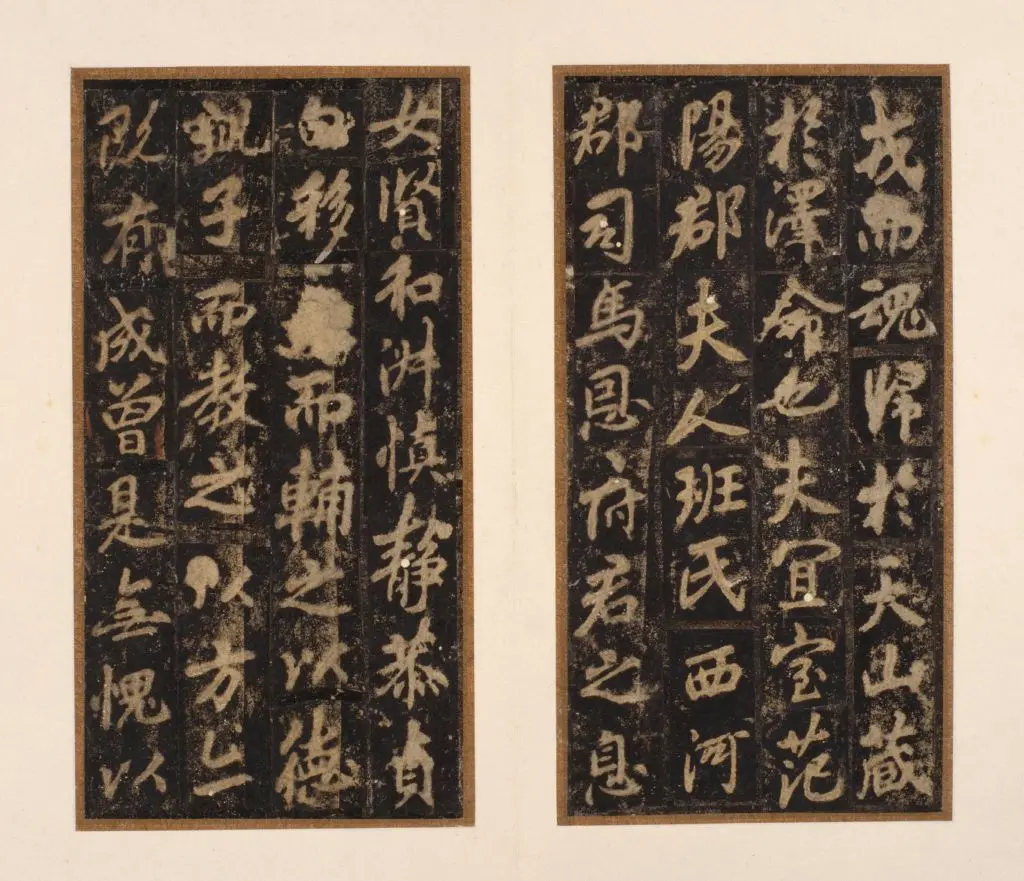 戎而魂歸於天山藏
於澤命也夫宜室范
陽郡夫人班氏西河
郡司馬恩府君之息
女賢和淑慎靜恭貞
移而輔之以德
子而教之以方亡
既有成曾是無愧以